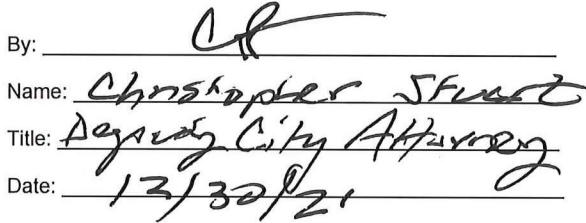 By:
Name: Christopher Stuart
Title: Deputy City Attorney
Date: 12/30/21